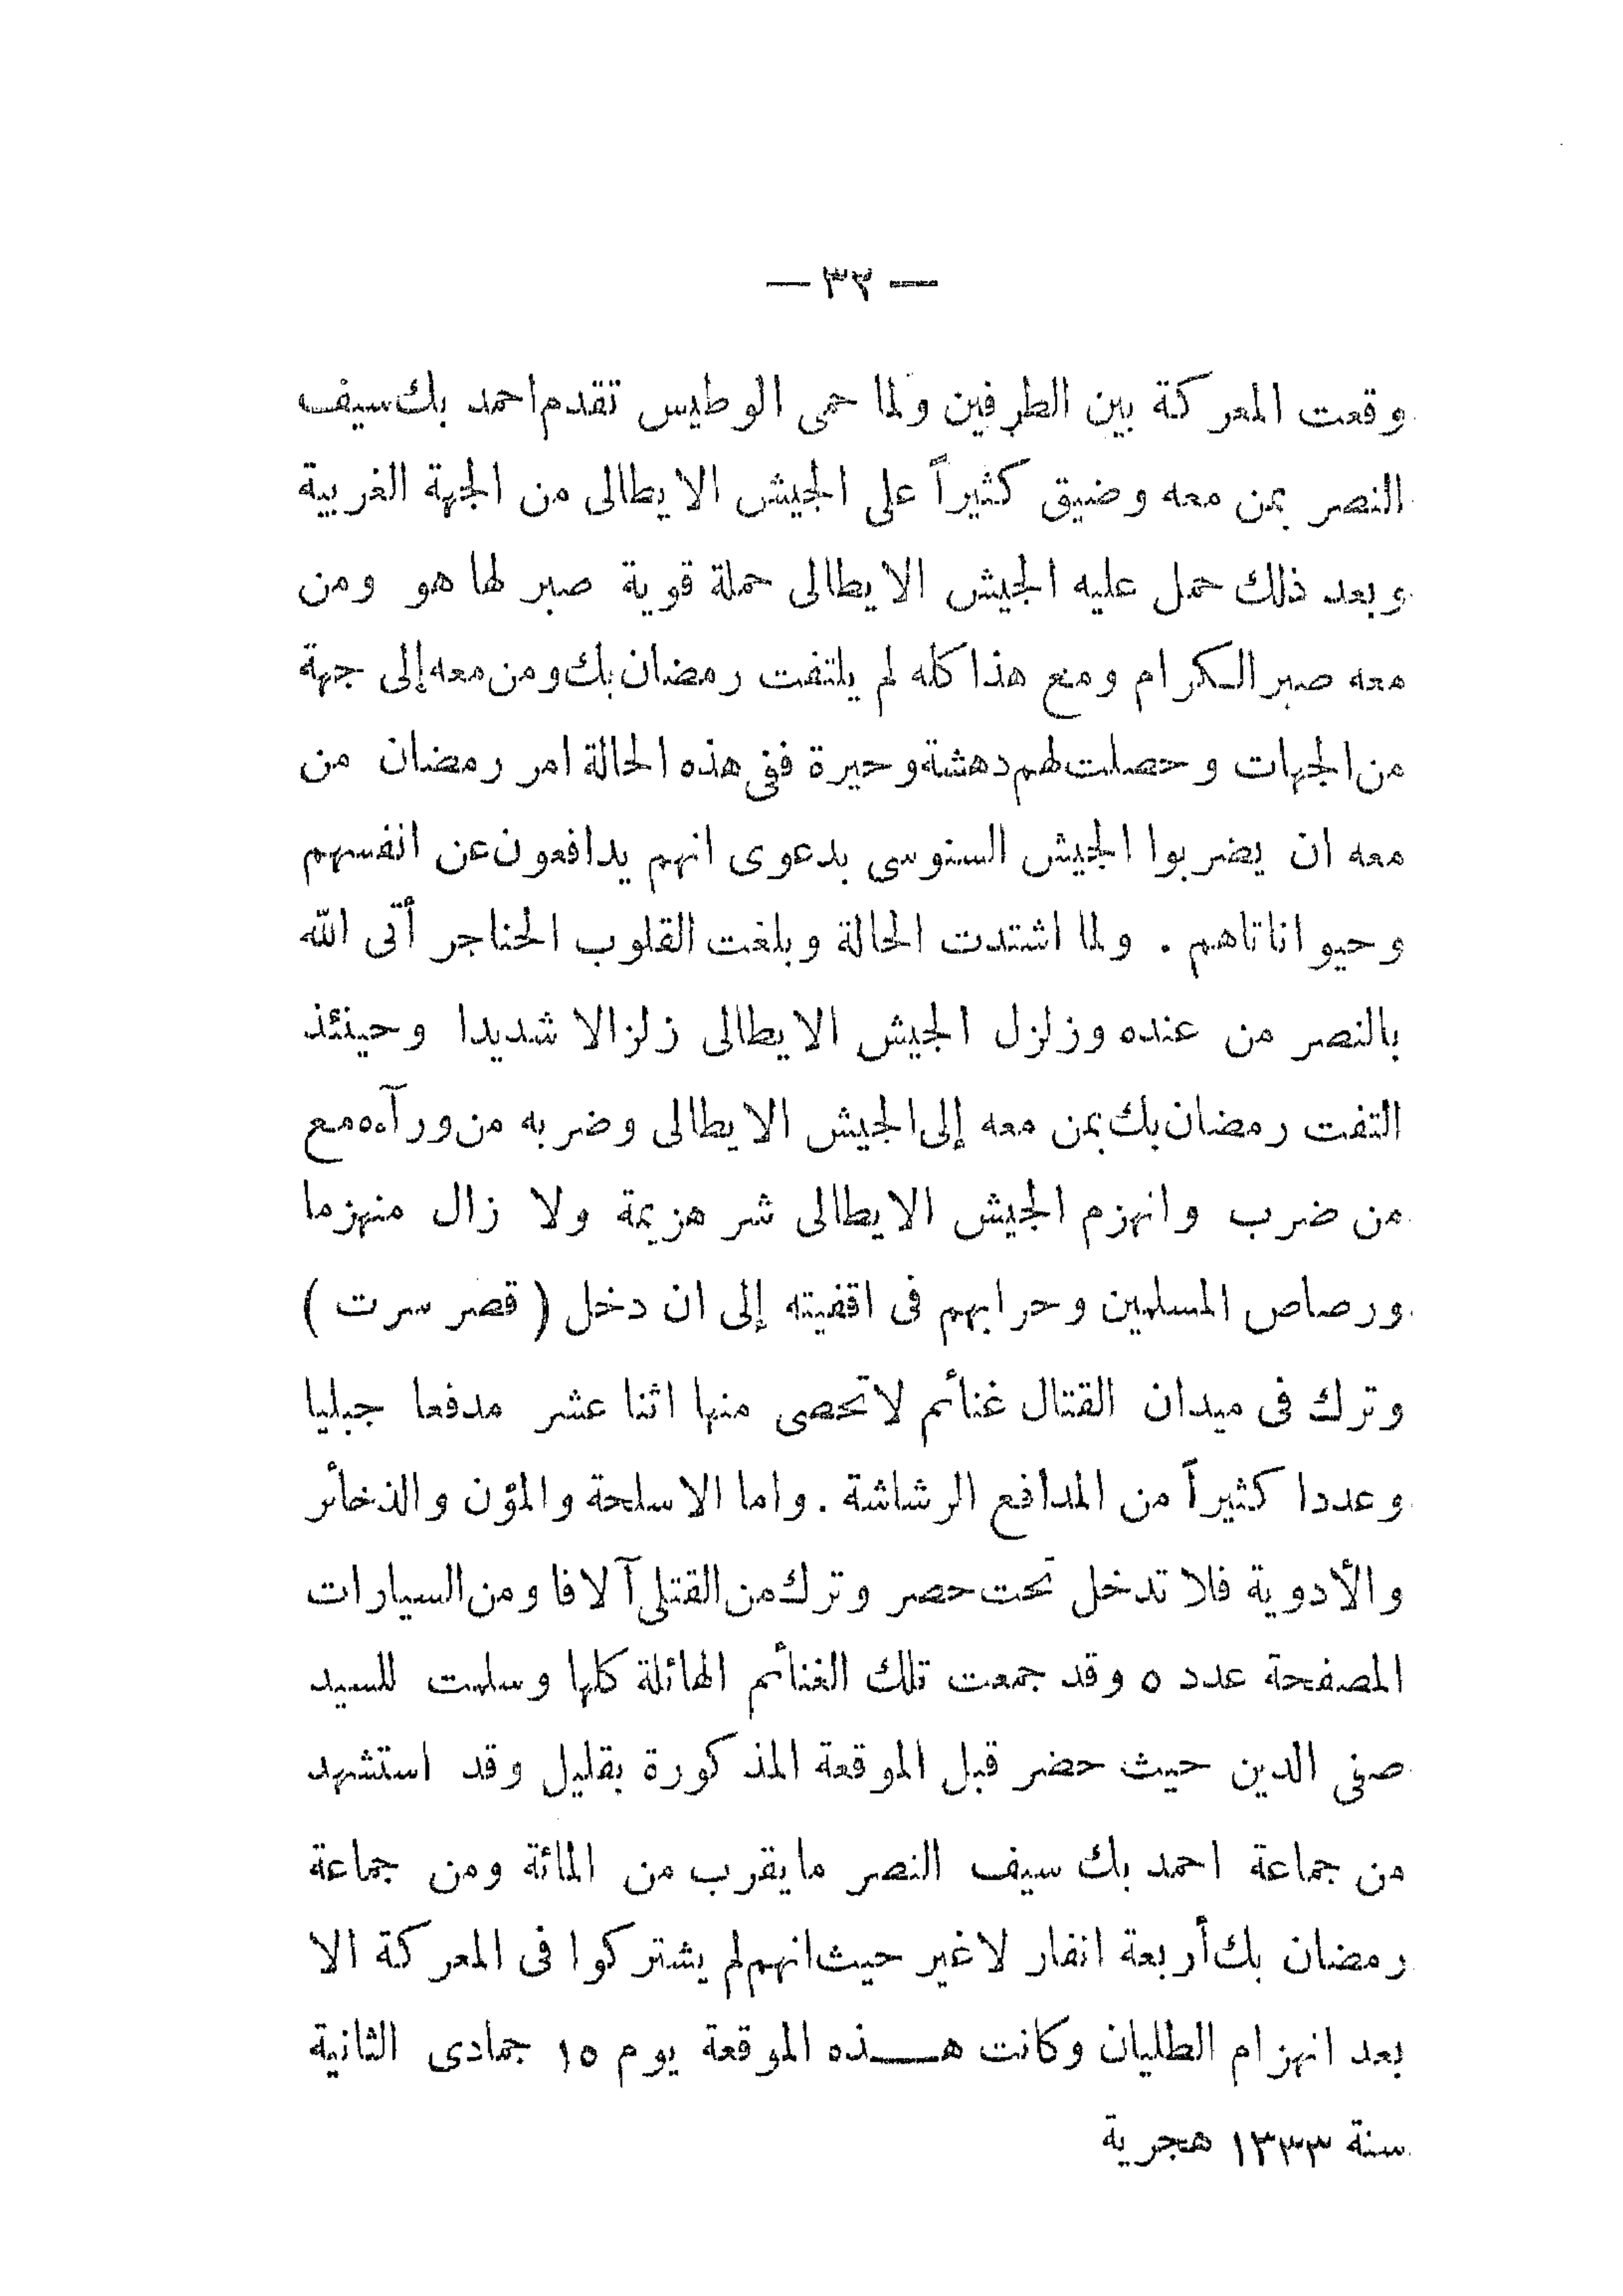 — ٣٢ —
وقعت المعركة بين الطرفين ولما حمى الوطيس تقدم احمد بك سيف
النصر بمن معه وضيق كثيراً على الجيش الايطالى من الجهة الغربية
وبعد ذلك حمل عليه الجيش الايطالى حملة قوية صبر لها هو ومن
معه صبر الكرام ومع هذا كله لم يلتفت رمضان بك ومن معه إلى جهة
من الجهات وحصلت لهم دهشة وحيرة ففى هذه الحالة امر رمضان من
معه ان يضربوا الجيش السنوسى بدعوى انهم يدافعون عن انفسهم
وحيواناتاهم . ولما اشتدت الحالة وبلغت القلوب الحناجر أتى الله
بالنصر من عنده وزلزل الجيش الايطالى زلزالا شديدا وحينئذ
التفت رمضان بك بمن معه إلى الجيش الايطالى وضربه من ورآءه مع
من ضرب وانهزم الجيش الايطالى شر هزيمة ولا زال منهزما
ورصاص المسلمين وحرابهم فى اقفيته إلى ان دخل ( قصر سرت )
وترك فى ميدان القتال غنائم لاتحصى منها اثنا عشر مدفعا جبليا
وعددا كثيراً من المدافع الرشاشة . واما الاسلحة والمؤن والذخائر
والأدوية فلا تدخل تحت حصر وترك من القتلى آلافا ومن السيارات
المصفحة عدد ٥ وقد جمعت تلك الغنائم الهائلة كلها وسلمت للسيد
صفى الدين حيث حضر قبل الموقعة المذكورة بقليل وقد استشهد
من جماعة احمد بك سيف النصر مايقرب من المائة ومن جماعة
رمضان بك أربعة انفار لاغير حيث انهم لم يشتركوا فى المعركة الا
بعد انهزام الطليان وكانت هـــذه الموقعة يوم ١٥ جمادى الثانية
سنة ١٣٣٣ هجرية